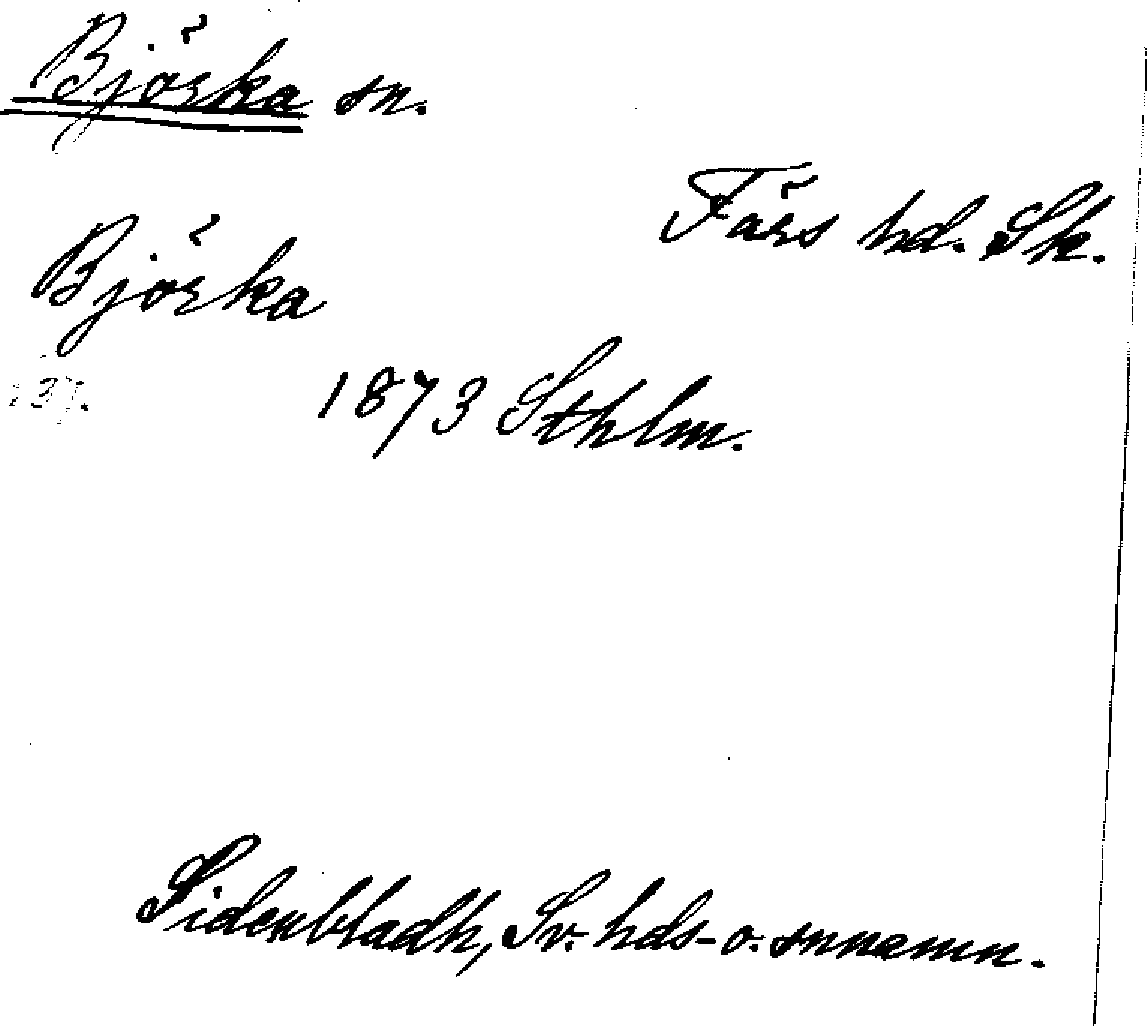 Björka sn.
Färs hd. Sk.
Björka
1873 Sthlm.
Sidenbladh, Sv. hds- o. snnamn.